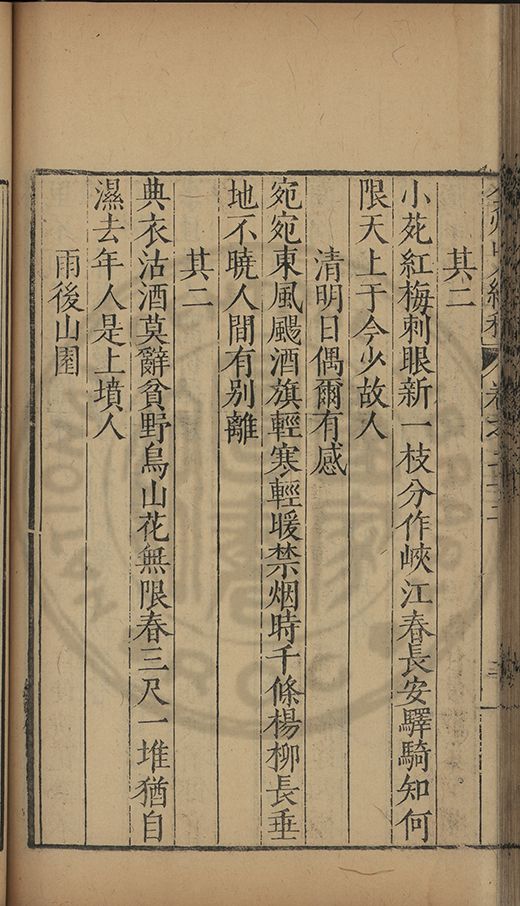 其二
小苑紅梅刺眼新一枝分作峽江春長安驛騎知何
限天上于今少故人
清明日偶爾有感
宛宛東風颺酒旗輕寒輕暖禁烟時千條楊柳長垂
地不曉人間有别離
其二
典衣沽酒莫辭貧野鳥山花無限春三尺一堆猶自
濕去年人是上墳人
雨後山園